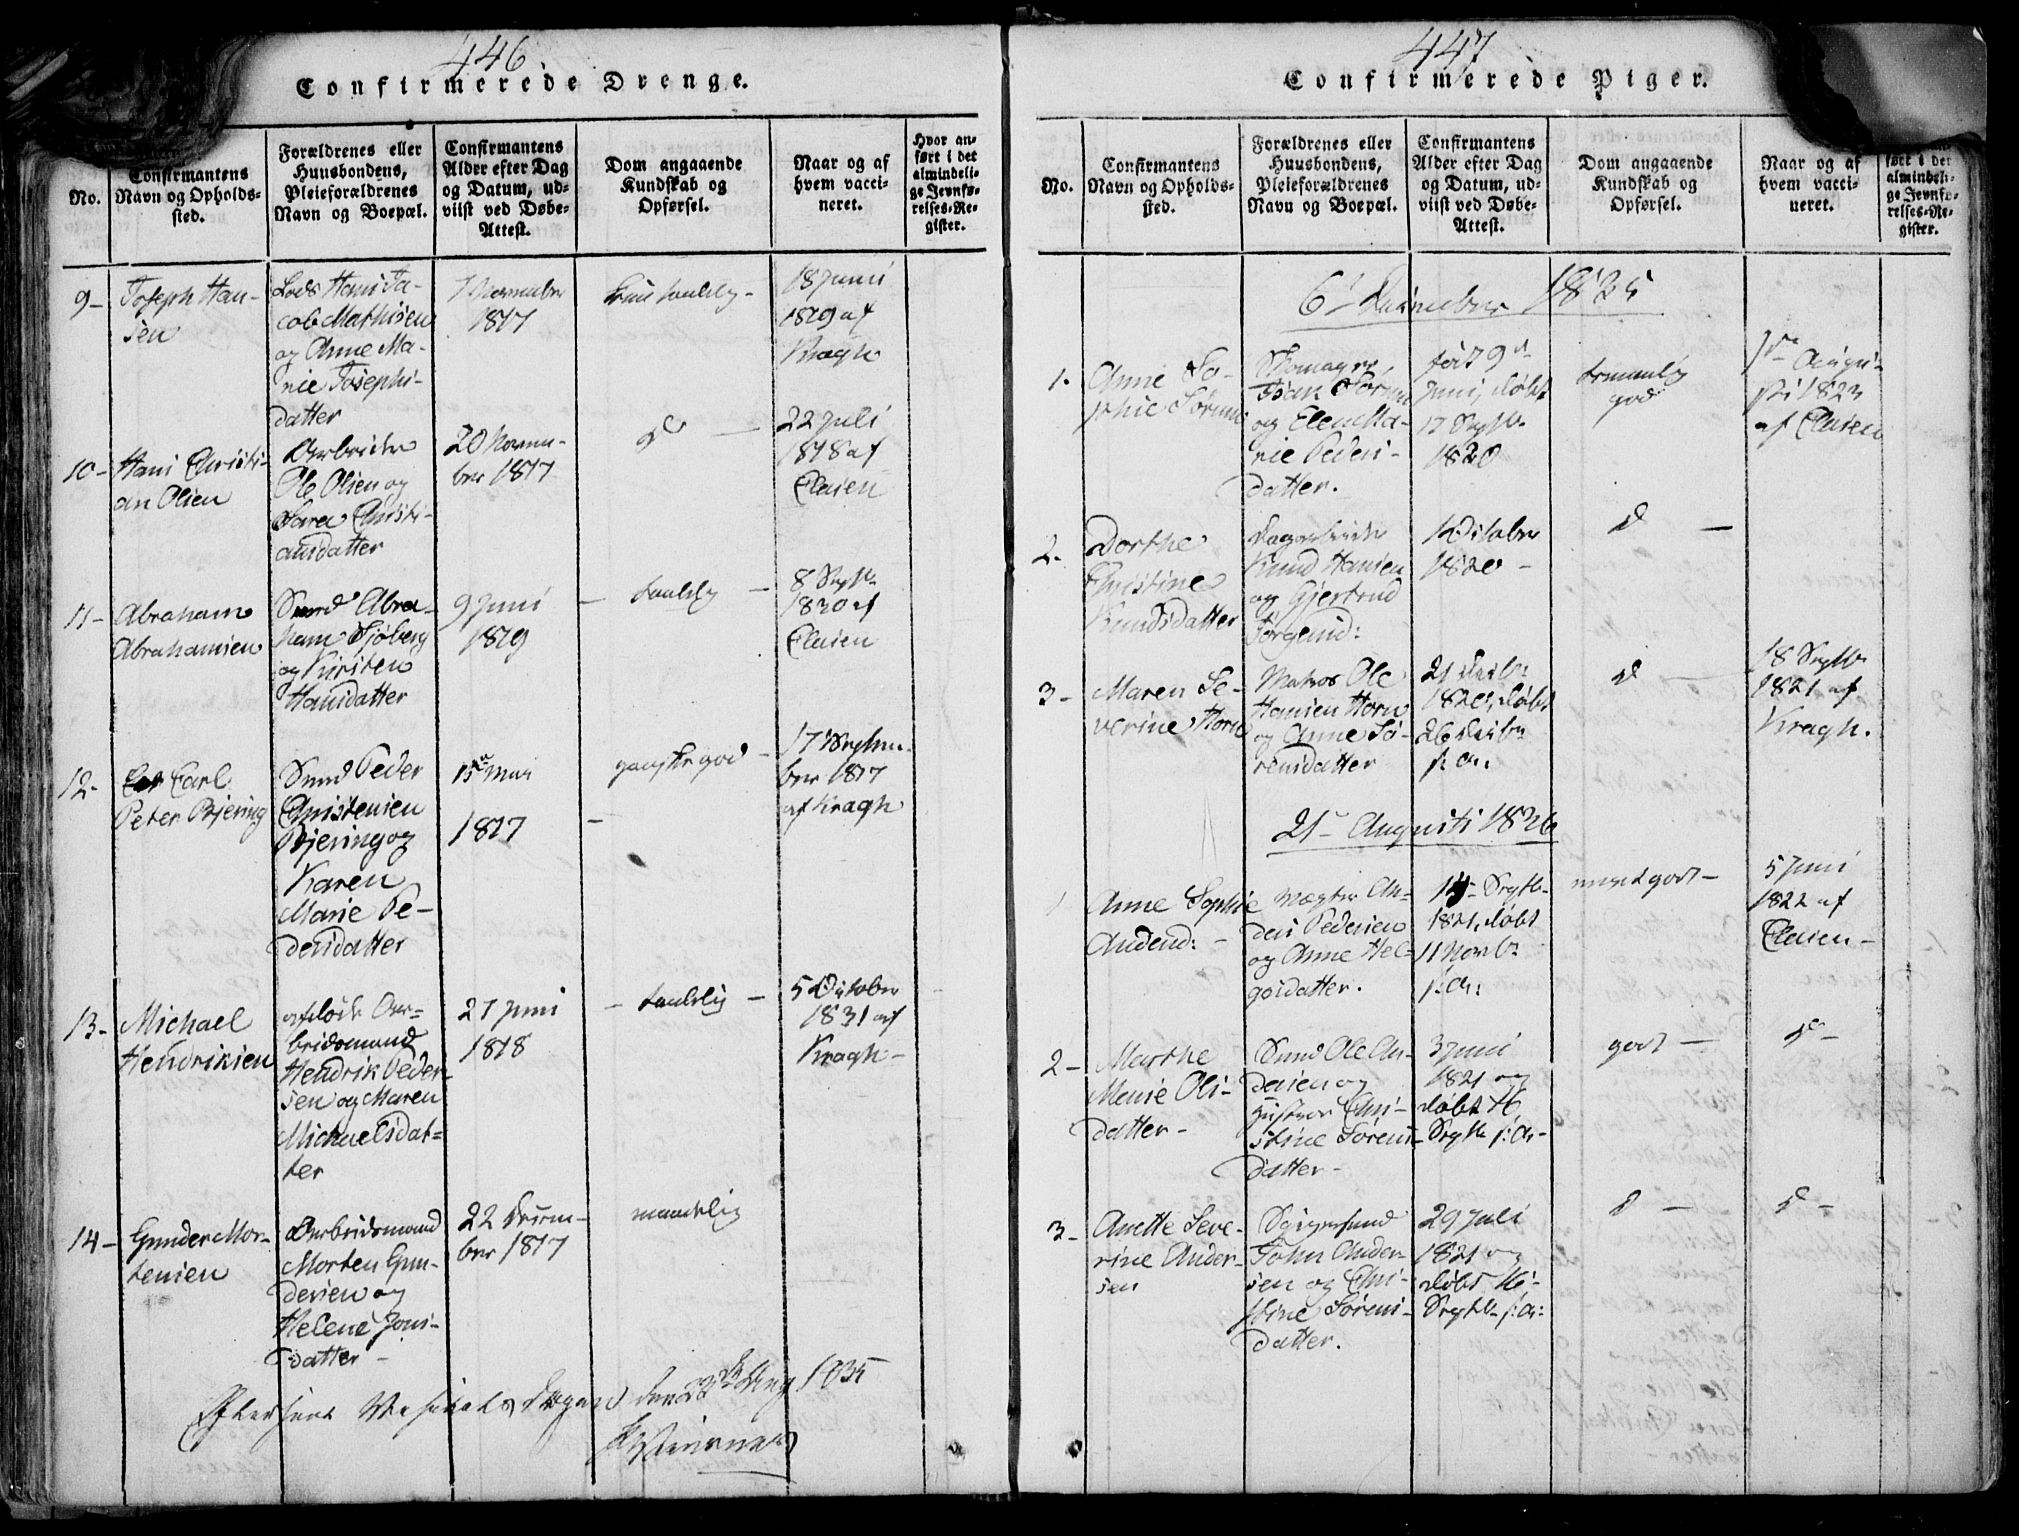 446.
Confirmerede Drenge.
No.
Confirmantens
Navn og Opholds-
sted.
Forældrenes eller
Huusbondens,
Pleieforældrenes
Navn og Boepæl.
Confirmantens
Alder efter Dag
og Datum, ud-
viist ved Døbe-
Attest.
Dom angaaende
Kundskab og
Opførsel.
Naar og af
hvem vacci-
neret.
Hvor an-
ført i det
almindeli-
ge Jevnfø-
relses-Re-
gister.
9- Joseph Han-
sen
Lods Hans Ja-
cob Mathisen
og Anne Ma-
rie Josephs-
datter
7 November
1817
18 Junii
1819 af
Kragh
10- Hans Christi-
an Olsen
Arbeider
Ole Olsen og
Sara Christi-
ansdatter
20 Novem-
ber 1817
do -
22 Juli
1818 af
Clasen
11- Abraham
Abrahamsen
Smed Abra-
ham Sjøberg
og Kirsten
Hansdatter
9 Juni
1819
- taalelig -
8 Septb.
1820 af
Clasen
12- Carl
Peter Bjering
Smed Peder
Christensen
Bjering og
Karen
Marie Pe-
dersdatter
15de Mai
1817
ganske god -
17 Septem-
ber 1817
af Kragh
13- Michael
Hendriksen
afdøde Ar-
beidsmand
Hendrik Peder-
sen og Maren
Michaelsdat-
ter
27 Juni
1818
- taalelig -
5 October
1831 af
Kragh-
14- Gunder Mor-
tensen
Arbeidsmand
Morten Gun-
dersen og
Helene Jons-
datter -
22 Decem-
ber 1817
maadelig
Efterseet den 22de Aug 1835
447
Confirmerede Piger.
No.
Confirmantens
Navn og Opholds-
sted.
Forældrenes eller
Huusbondens,
Pleieforældrenes
Navn og Boepæl.
Confirmantens
Alder efter Dag
og Datum, ud-
viist ved Døbe-
Attest.
Dom angaaende
Kundskab og
Opførsel.
Naar og af
hvem vacci-
neret.
ført i det
almindeli-
ge Jevnfø-
relses-Re-
gister.
6' December 1835
1. Anne So-
phie Sørens
Skomager
Isak Sørens
og Elen Ma-
rie Peders-
datter.
født 9de
Juni, døbt
17 Septb.
1820
temmelig
god
1ste Augu-
sti 1823
af Clasen
2. Dorthe
Christine
Knudsdatter
Dagarbeider
Knud Hansen
og Gjertrud
Jørgensd:
1 October
1820 -
do -
3- Maren Se-
verine Horn
Matros Ole
Hansen Horn
og Anne Sø-
rensdatter
21 Decbr
1820, døbt
26 Decbr
s: A:
do -
18 Septb.
1821 af
Kragh.
21de Augusti 1836
1 Anne Sophie
Andersd: -
Vægter An-
ders Pedersen
og Anne Hel-
gesdatter.
14- Septb-
1821, døbt
11 Novbr
s: A:
meget godt-
5 Juni
1822 af
Clasen-
2- Marthe
Marie Ols-
datter-
Smed Ole An-
dersen og
Hustroe Chri-
stine Sørens-
datter-
3 Juni
1821 og
døbt 16
Septb s: A:-
godt -
do -
3- Anette Seve-
rine Ander-
sen
John Ander-
sen og Chri-
stine Sørens-
datter.
29 Juli
1821 og
døbt 16-
Septb s: A:
do -
do -